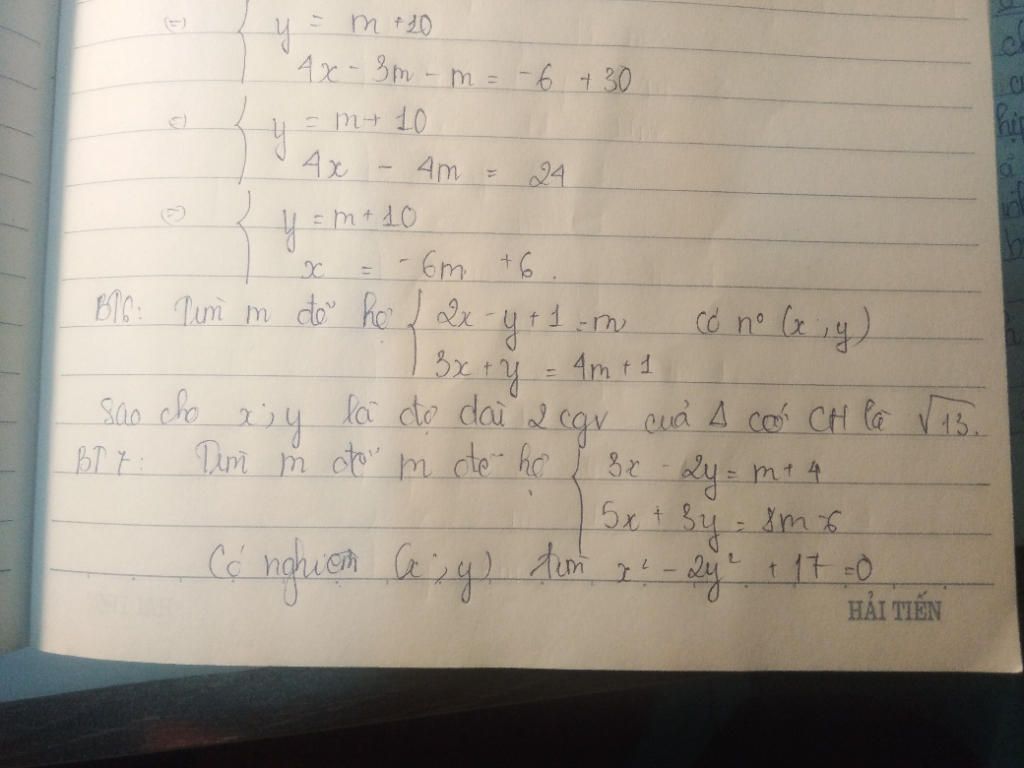 (=) { y = m +10
4x - 3m - m = -6 + 30
(=) { y = m + 10
4x - 4m = 24
(=) { y = m + 10
x = -6m + 6.
BT6: Tìm m để hệ { 2x - y + 1 = m có n° (x ; y)
3x + y = 4m + 1
Sao cho x ; y là độ dài 2 cgv của Δ có CH là √13.
BT7: Tìm m để m để hệ { 3x - 2y = m + 4
5x + 3y = 8m - 6
Có nghiệm (x ; y) tìm x² - 2y² + 17 = 0
HẢI TIẾN